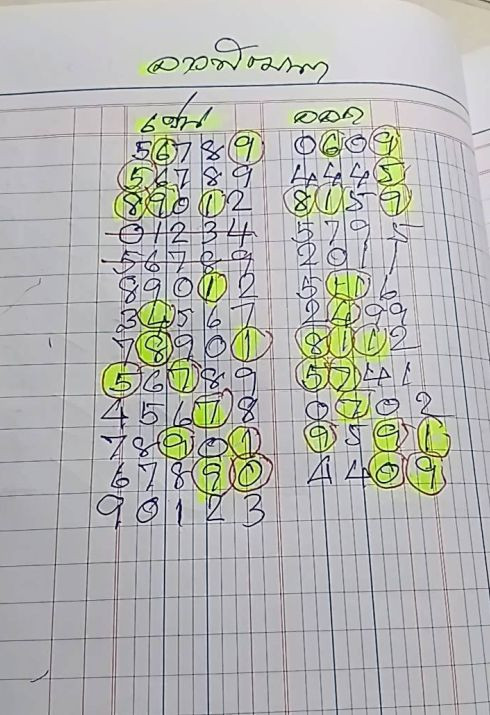 ลาวพัฒนา
เช่น ออก
5 6 7 8 9 0 6 0 9
5 6 7 8 9 4 4 4 5
8 9 0 1 2 8 1 5 9
0 1 2 3 4 5 7 9 5
5 6 7 8 9 2 0 1 1
8 9 0 1 2 5 1 6
3 4 5 6 7 2 4 9 9
7 8 9 0 1 8 1 1 2
5 6 7 8 9 5 7 4 1
4 5 6 7 8 0 7 0 2
7 8 9 0 1 9 5 9 1
6 7 8 9 0 4 4 0 9
9 0 1 2 3